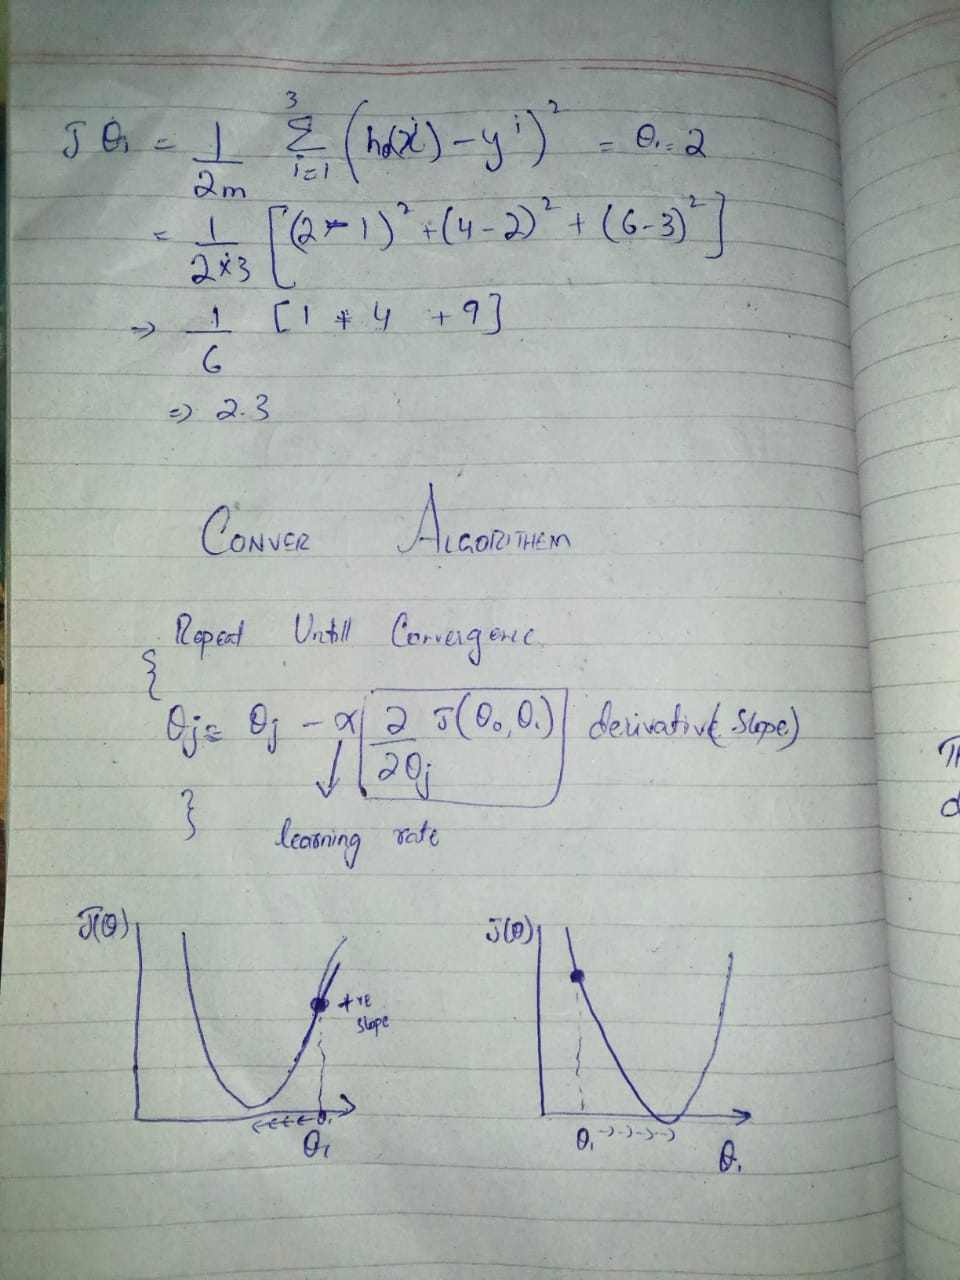 J θ₁ = 1/2m 3 Σ i=1 (h₀(xⁱ) - yⁱ)² = θ₁ = 2
= 1/2×3 [(2-1)² + (4-2)² + (6-3)²]
⇒ 1/6 [1 + 4 + 9]
⇒ 2.3
CONVER ALGORITHEM
Repeat Untill Convergenc
{
θj = θj - α ∂/∂θj J(θ₀, θ₁) derivative(slope)
}
learning rate
J(θ) J(θ)
+ve
slope
θ₁ θ₁ θ₁